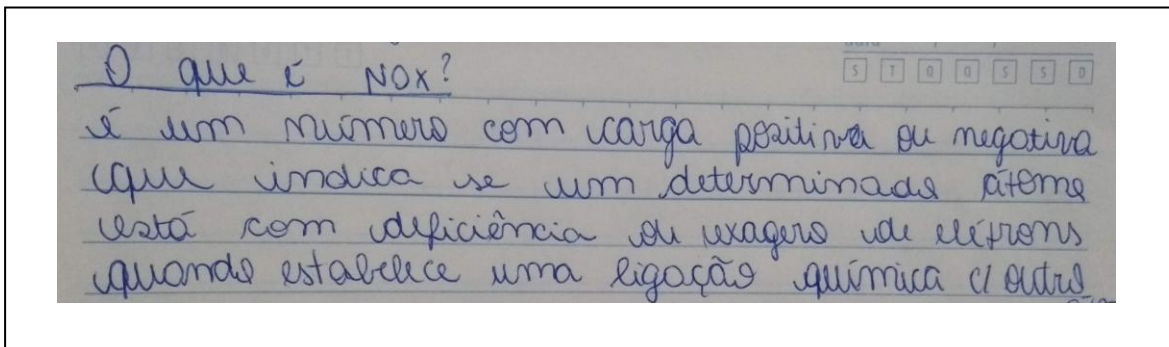 S T Q Q S S D
O que é NOX?
é um número com carga positiva ou negativa
que indica se um determinado átomo
está com deficiência ou exagero de elétrons
quando estabelece uma ligação química c/ outro